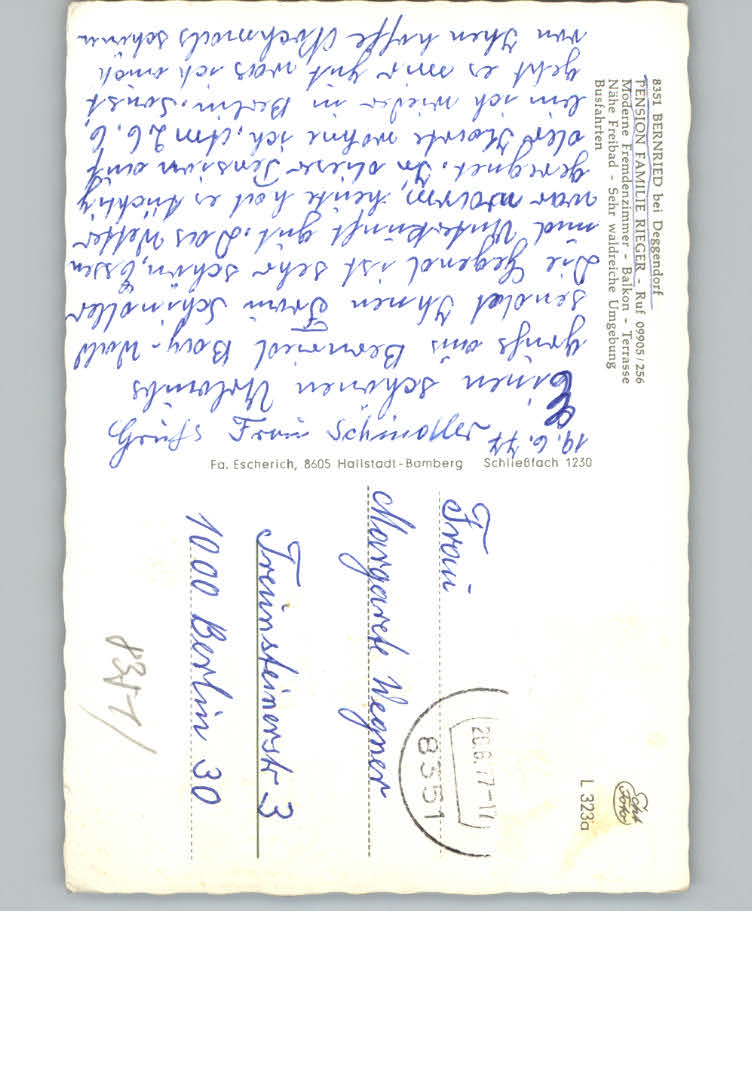 8351 BERNRIED bei Deggendorf
PENSION FAMILIE RIEGER - Ruf 09905/256
Moderne Fremdenzimmer - Balkon - Terrasse
Nähe Freibad - Sehr waldreiche Umgebung
Busfahrten
19.6.77
Einen schönen Urlaubs
gruß aus Bernried Bay-Wald
sendet Ihnen Frau Schindler
Die Gegend ist sehr schön, Essen
und Unterkunft gut. Das Wetter
war warm, heute hat es tüchtig
geregnet. In dieser Pension auf
der Karte wohne ich. Am 26.6.
bin ich wieder in Berlin. Sonst
geht es mir gut was ich auch
von Ihnen hoffe Nochmals schönen
Gruß Frau Schindler
Fa. Escherich, 8605 Hallstadt-Bamberg Schließfach 1230
Frau
Margarete Wegner
Treunsteinerstr 3
1000 Berlin 30
20.6.77-17
8351
L 323a
8351